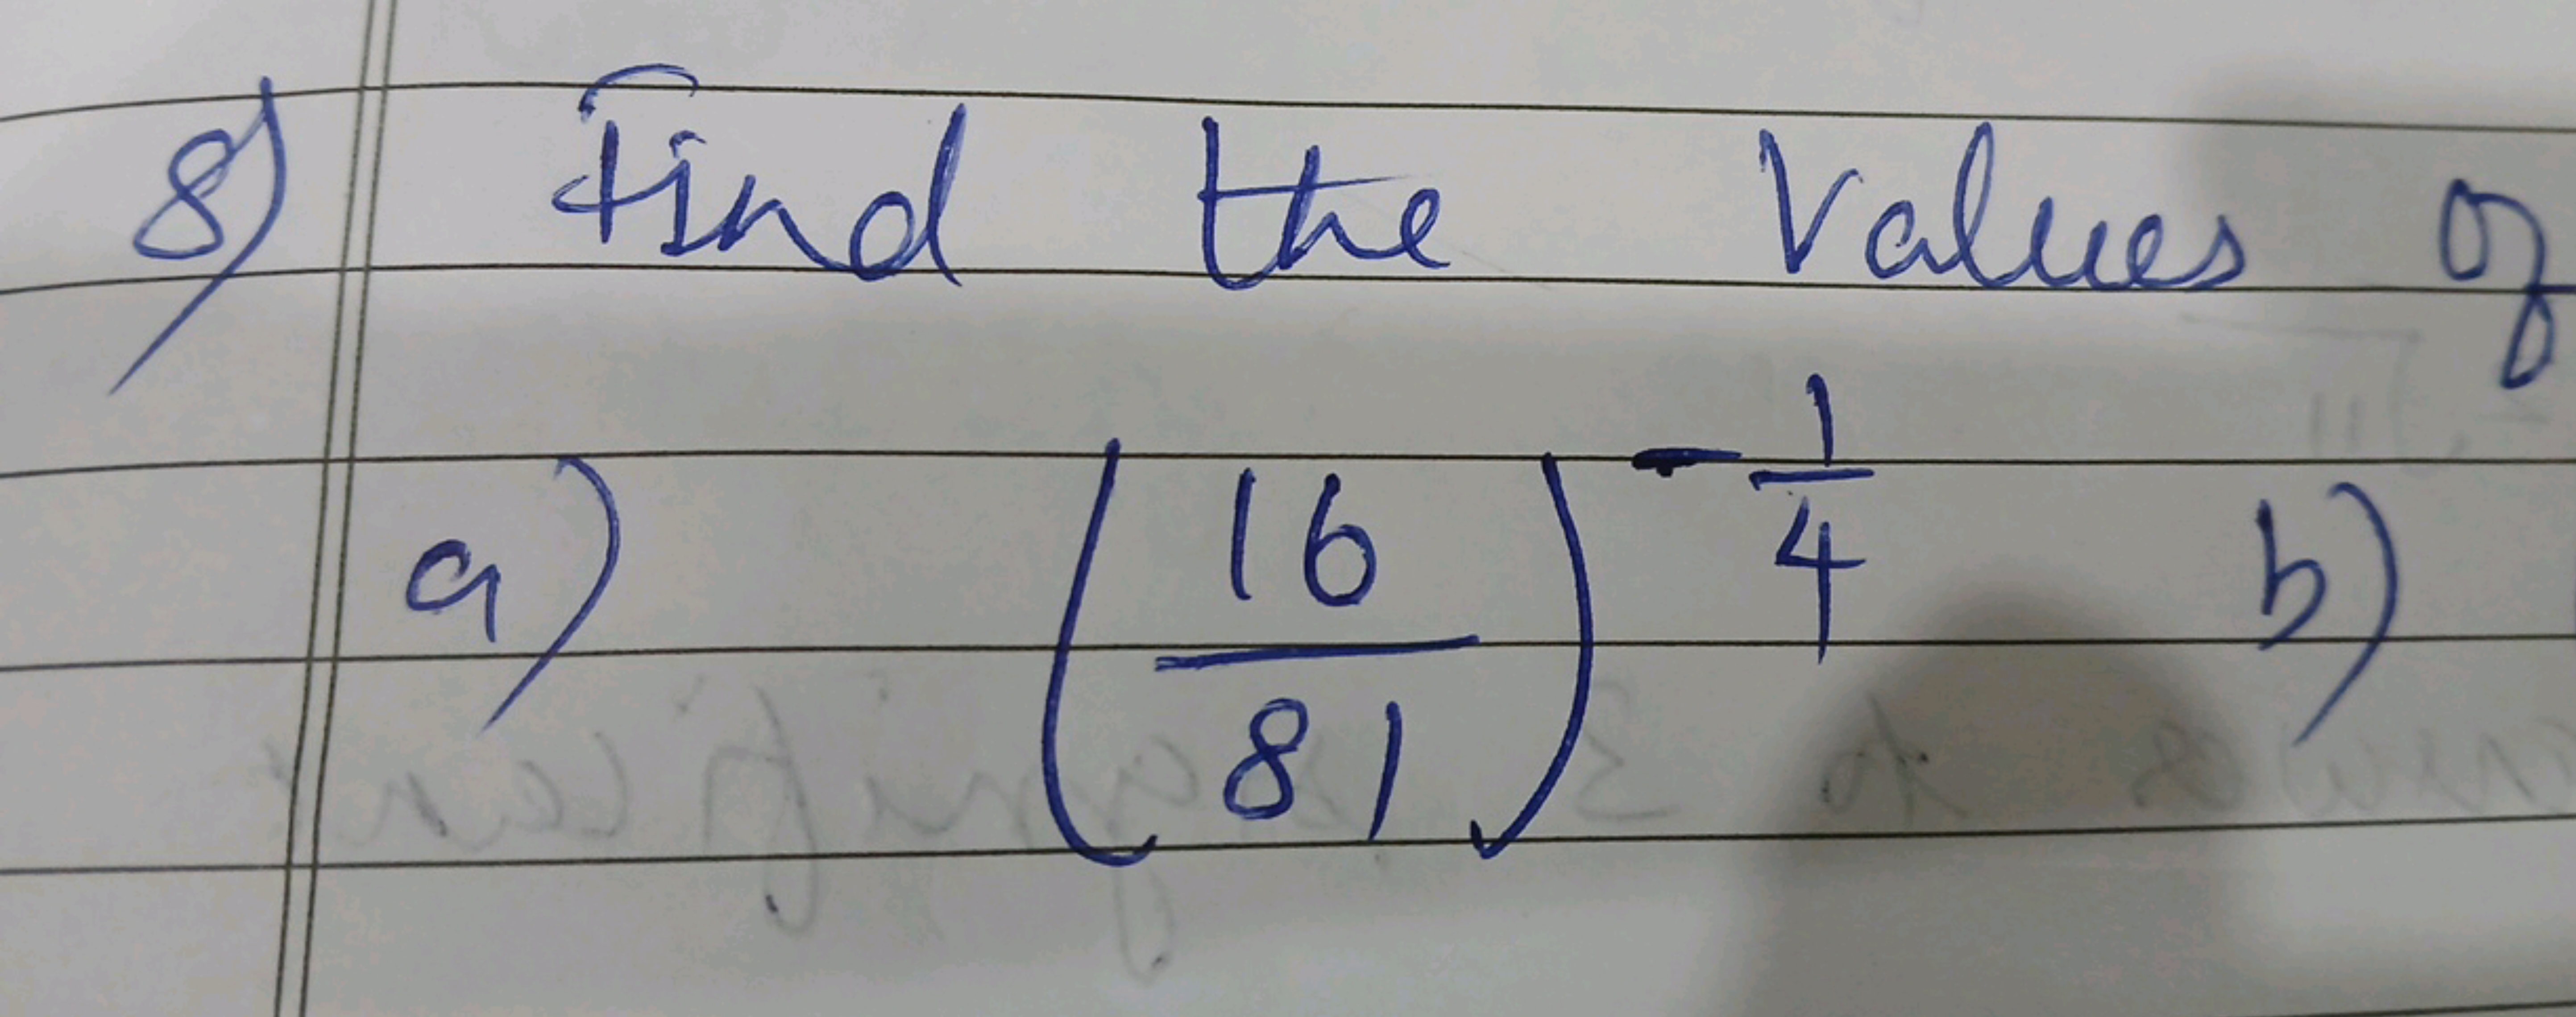 8) Find the Values of
a) (16/81)^-1/4 b)